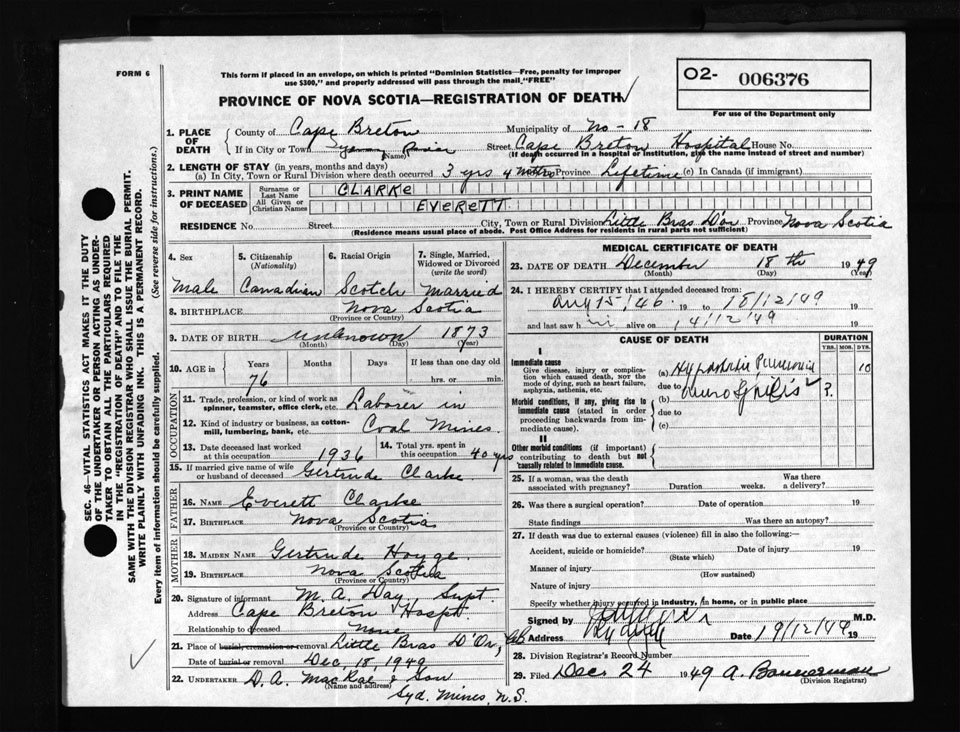 FORM 6
This form if placed in an envelope, on which is printed "Dominion Statistics—Free, penalty for improper
use $300," and properly addressed will pass through the mail "FREE"
O2- 006376
PROVINCE OF NOVA SCOTIA—REGISTRATION OF DEATH
For use of the Department only
1. PLACE OF DEATH County of Cape Breton Municipality of No - 18
If in City or Town (Name) Street Cape Breton Hospital House No.
(If death occurred in a hospital or institution, give the name instead of street and number)
2. LENGTH OF STAY (in years, months and days)
(a) In City, Town or Rural Division where death occurred 3 yrs 4 Province Lifetime (c) In Canada (if immigrant)
3. PRINT NAME OF DECEASED Surname or Last Name CLARKE
All Given or Christian Names EVERETT
RESIDENCE No. Street City, Town or Rural Division Little Bras D'or Province Nova Scotia
(Residence means usual place of abode. Post Office Address for residents in rural parts not sufficient)
4. Sex Male
5. Citizenship (Nationality) Canadian
6. Racial Origin Scotch
7. Single, Married, Widowed or Divorced (write the word) Married
8. BIRTHPLACE Nova Scotia
(Province or Country)
9. DATE OF BIRTH unknown 1873
(Month) (Day) (Year)
10. AGE in Years Months Days If less than one day old
76 hrs. or min.
OCCUPATION
11. Trade, profession, or kind of work as spinner, teamster, office clerk, etc. Laborer in
12. Kind of industry or business, as cotton-mill, lumbering, bank, etc. Coal Mines
13. Date deceased last worked at this occupation 1936
14. Total yrs. spent in this occupation 40 yrs
15. If married give name of wife or husband of deceased Gertrude Clarke
FATHER
16. NAME Everett Clarke
17. BIRTHPLACE Nova Scotia
(Province or Country)
MOTHER
18. MAIDEN NAME Gertrude
19. BIRTHPLACE Nova Scotia
(Province or Country)
20. Signature of informant M. A. Day, Supt.
Address Cape Breton Hospt.
Relationship to deceased none
21. Place of burial, cremation or removal Little Bras D'Or, CB
Date of burial or removal Dec. 18, 1949
22. UNDERTAKER D. A. MacRae & Son
(Name and address)
Syd. Mines, N.S.
MEDICAL CERTIFICATE OF DEATH
23. DATE OF DEATH December 18th 1949
(Month) (Day) (Year)
24. I HEREBY CERTIFY that I attended deceased from:
Aug 15/46 19 to 18/12/49 19
and last saw him alive on 14/12/49 19
CAUSE OF DEATH
DURATION
YRS. MOS. DYS.
I
Immediate cause
Give disease, injury or complication which caused death, not the mode of dying, such as heart failure, asphyxia, asthenia, etc.
(a) 10
due to
Morbid conditions, if any, giving rise to immediate cause (stated in order proceeding backwards from immediate cause).
(b) ?
due to
(c)
II
Other morbid conditions (if important) contributing to death but not causally related to immediate cause.
25. If a woman, was the death associated with pregnancy? Duration weeks. Was there a delivery?
26. Was there a surgical operation? Date of operation 19
State findings Was there an autopsy?
27. If death was due to external causes (violence) fill in also the following:—
Accident, suicide or homicide? Date of injury 19
(State which)
Manner of injury
(How sustained)
Nature of injury
Specify whether injury occurred in industry, in home, or in public place
Signed by M.D.
Address Date 19/12/49 19
28. Division Registrar's Record Number
29. Filed Dec 24 1949 A. Bannerman
(Division Registrar)
SEC. 46—VITAL STATISTICS ACT MAKES IT THE DUTY
OF THE UNDERTAKER OR PERSON ACTING AS UNDER-
TAKER TO OBTAIN ALL THE PARTICULARS REQUIRED
IN THE "REGISTRATION OF DEATH" AND TO FILE THE
SAME WITH THE DIVISION REGISTRAR WHO SHALL ISSUE THE BURIAL PERMIT.
WRITE PLAINLY WITH UNFADING INK. THIS IS A PERMANENT RECORD.
Every item of information should be carefully supplied. (See reverse side for instructions.)